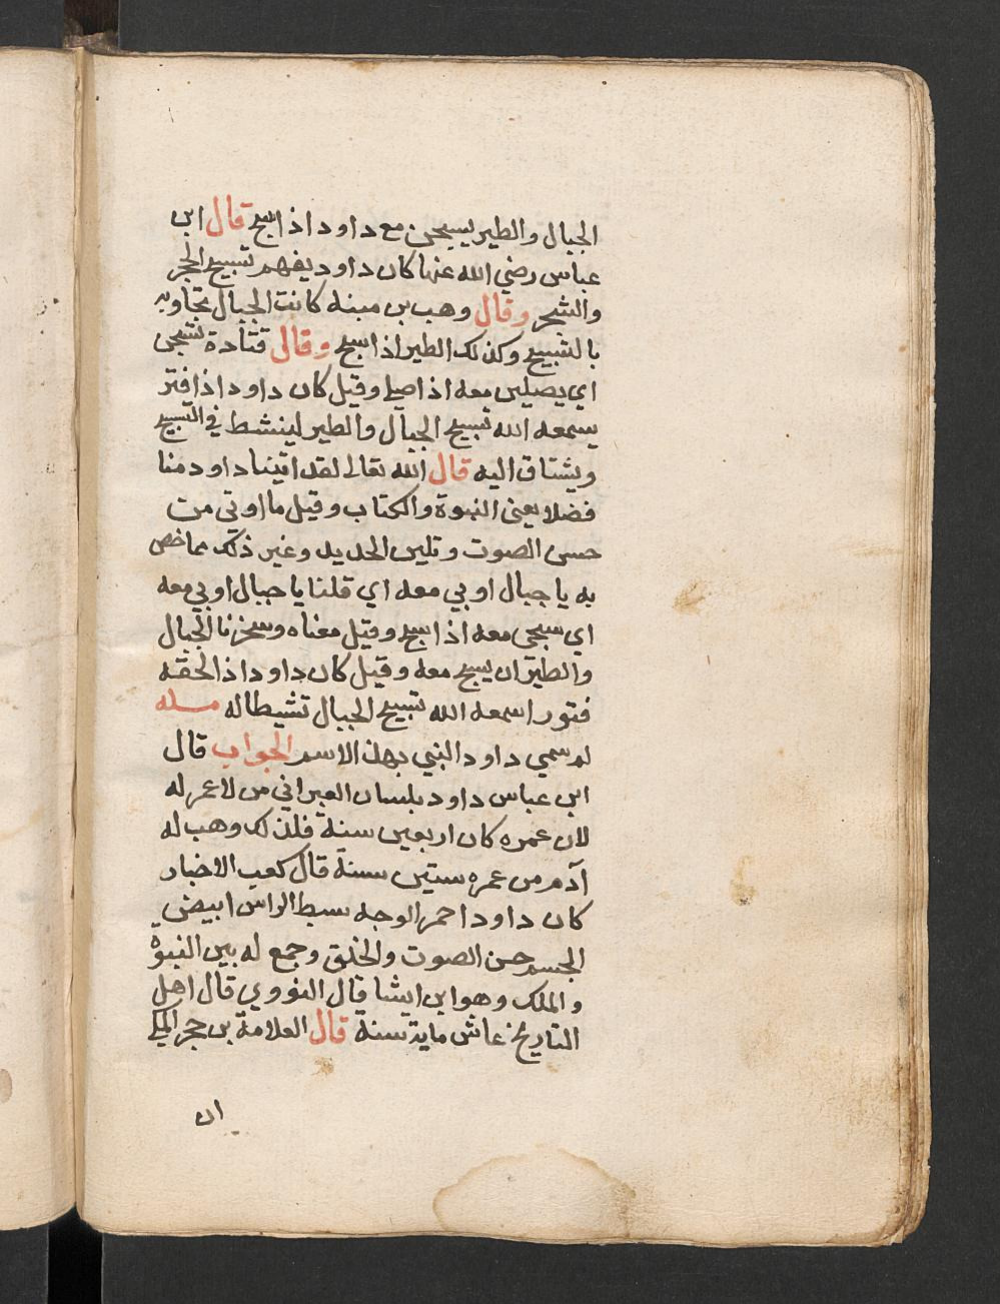 الجبال والطير يسبحن مع داود اذا سبح قال ابن
عباس رضي الله عنهما كان داود يفهم تسبيح الحجر
والشجر وقال وهب بن منبه كانت الجبال تجاوبه
بالتسبيح وكذلك الطير اذا سبح وقال قتادة تسبحن
اي يصلين معه اذا صلى وقيل كان داود اذا فتر
يسمعه الله تسبيح الجبال والطير لينشط في التسبيح
ويشتاق اليه قال الله تعالى لقد اتينا داود منا
فضلا يعني النبوة والكتاب وقيل ما اوتى من
حسن الصوت وتلين الحديد وغير ذلك مما خص
به يا جبال اوبي معه اي قلنا يا جبال اوبي معه
اي سبحي معه اذا سبح وقيل معناه وسخرنا الجبال
والطير ان يسبح معه وقيل كان داود اذا لحقه
فتور اسمعه الله تسبيح الجبال تنشيطا له مسله
لم سمي داود النبي بهذا الاسم الجواب قال
ابن عباس داود بلسان العبراني من لا عمر له
لان عمره كان اربعين سنة فلذلك وهب له
آدم من عمره ستين سنة قال كعب الاخبار
كان داود احمر الوجه سبط الراس ابيض
الجسم حسن الصوت والخلق وجمع له بين النبوة
والملك وهو ابن ايشا قال النووي قال اهل
التاريخ عاش ماية سنة قال العلامة بن حجر المكي
ان